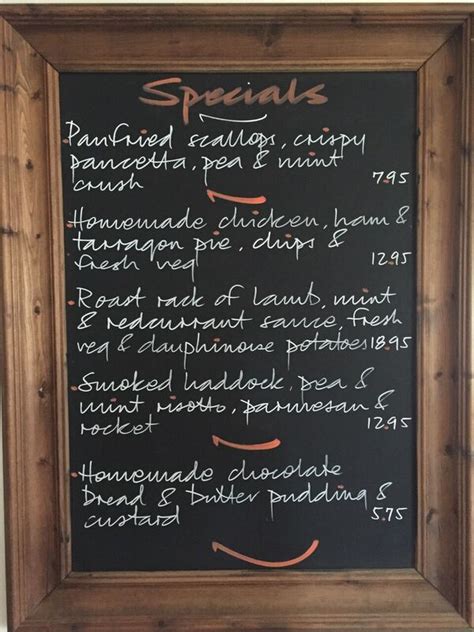 Specials
Panfried scallops, crispy
pancetta, pea & mint
crush 7.95
Homemade chicken, ham &
tarragon pie, chips &
fresh veg 12.95
Roast rack of lamb, mint
& redcurrant sauce, fresh
veg & dauphinoise potatoes 18.95
Smoked haddock, pea &
mint risotto, parmesan &
rocket 12.95
Homemade chocolate
bread & butter pudding &
custard 5.75